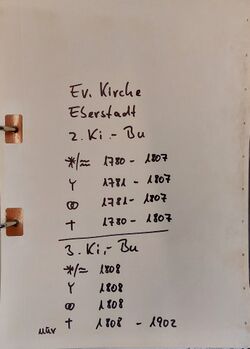 Ev. Kirche
Eberstadt
2. Ki.-Bu
*/≈ 1780 - 1807
Y 1781 - 1807
⚭ 1781 - 1807
† 1780 - 1807
3. Ki.-Bu
*/≈ 1808
Y 1808
⚭ 1808
nur † 1808 - 1902